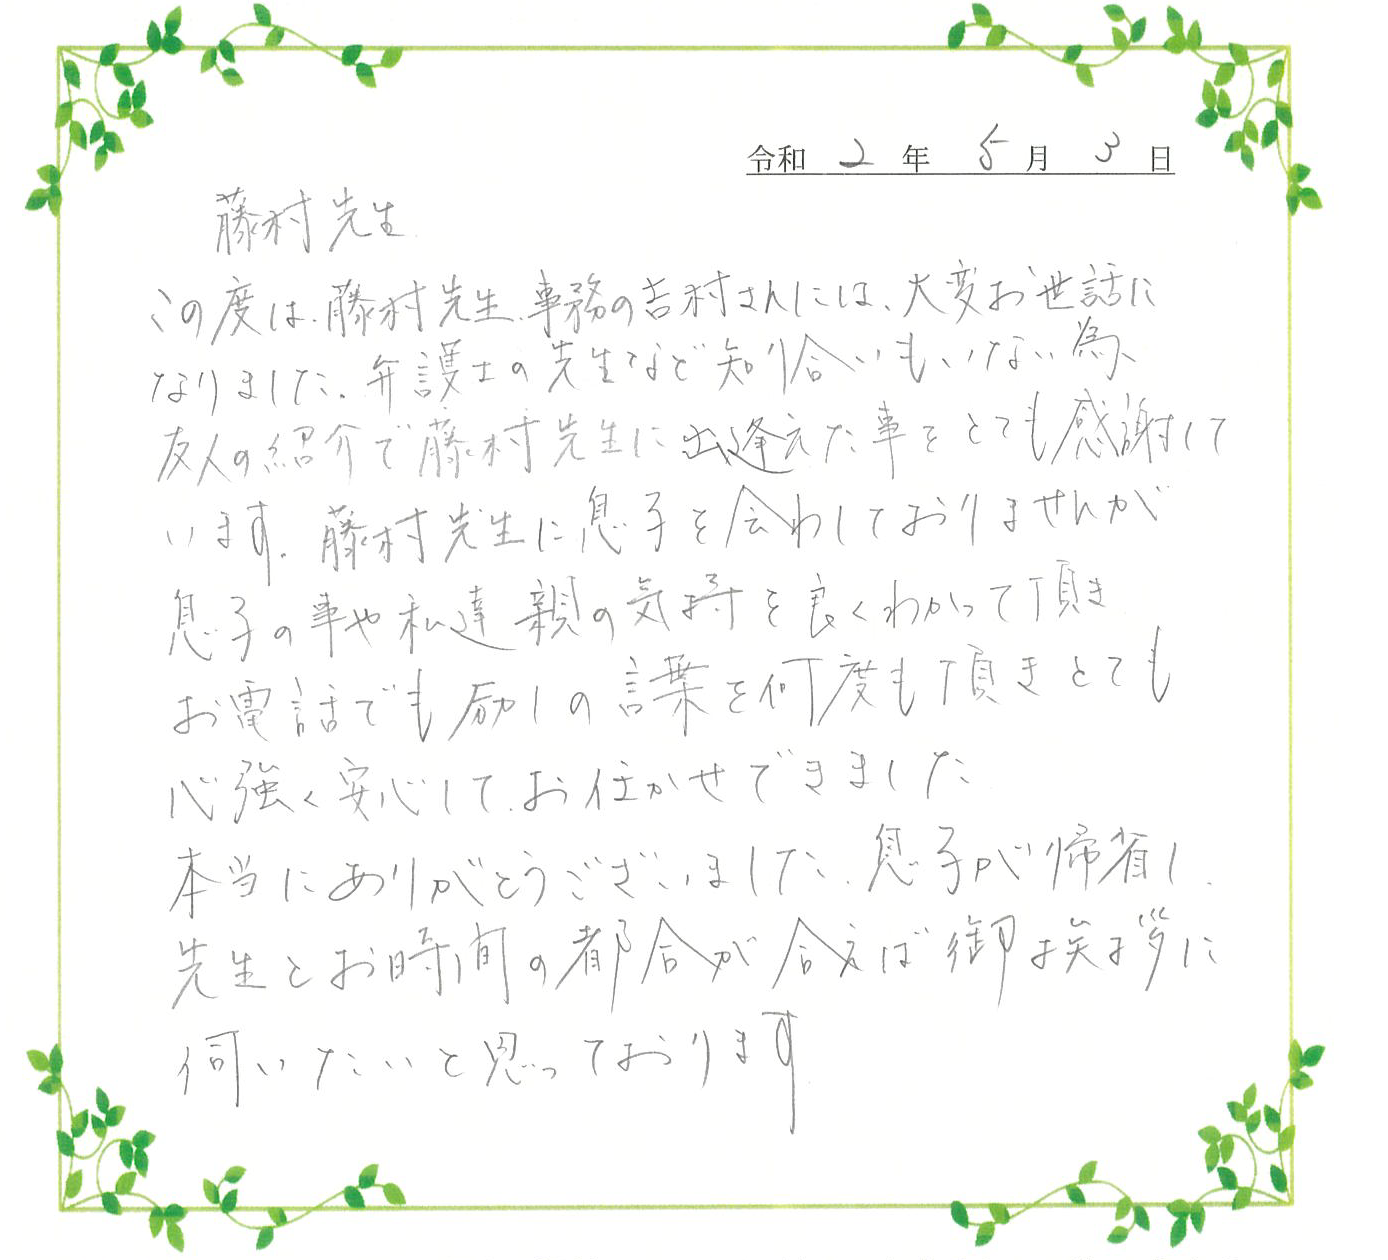 令和 2 年 5 月 3 日
藤村先生
この度は、藤村先生、事務の吉村さんには、大変お世話に
なりました。弁護士の先生など知り合いもいない為、
友人の紹介で藤村先生に出逢えた事をとても感謝して
います。藤村先生に息子を会わしておりませんが
息子の事や私達親の気持を良くわかって頂き
お電話でも励しの言葉を何度も頂きとても
心強く安心して、お任かせできました
本当にありがとうございました。息子が帰省し、
先生とお時間の都合が合えば御挨拶に
伺いたいと思っております